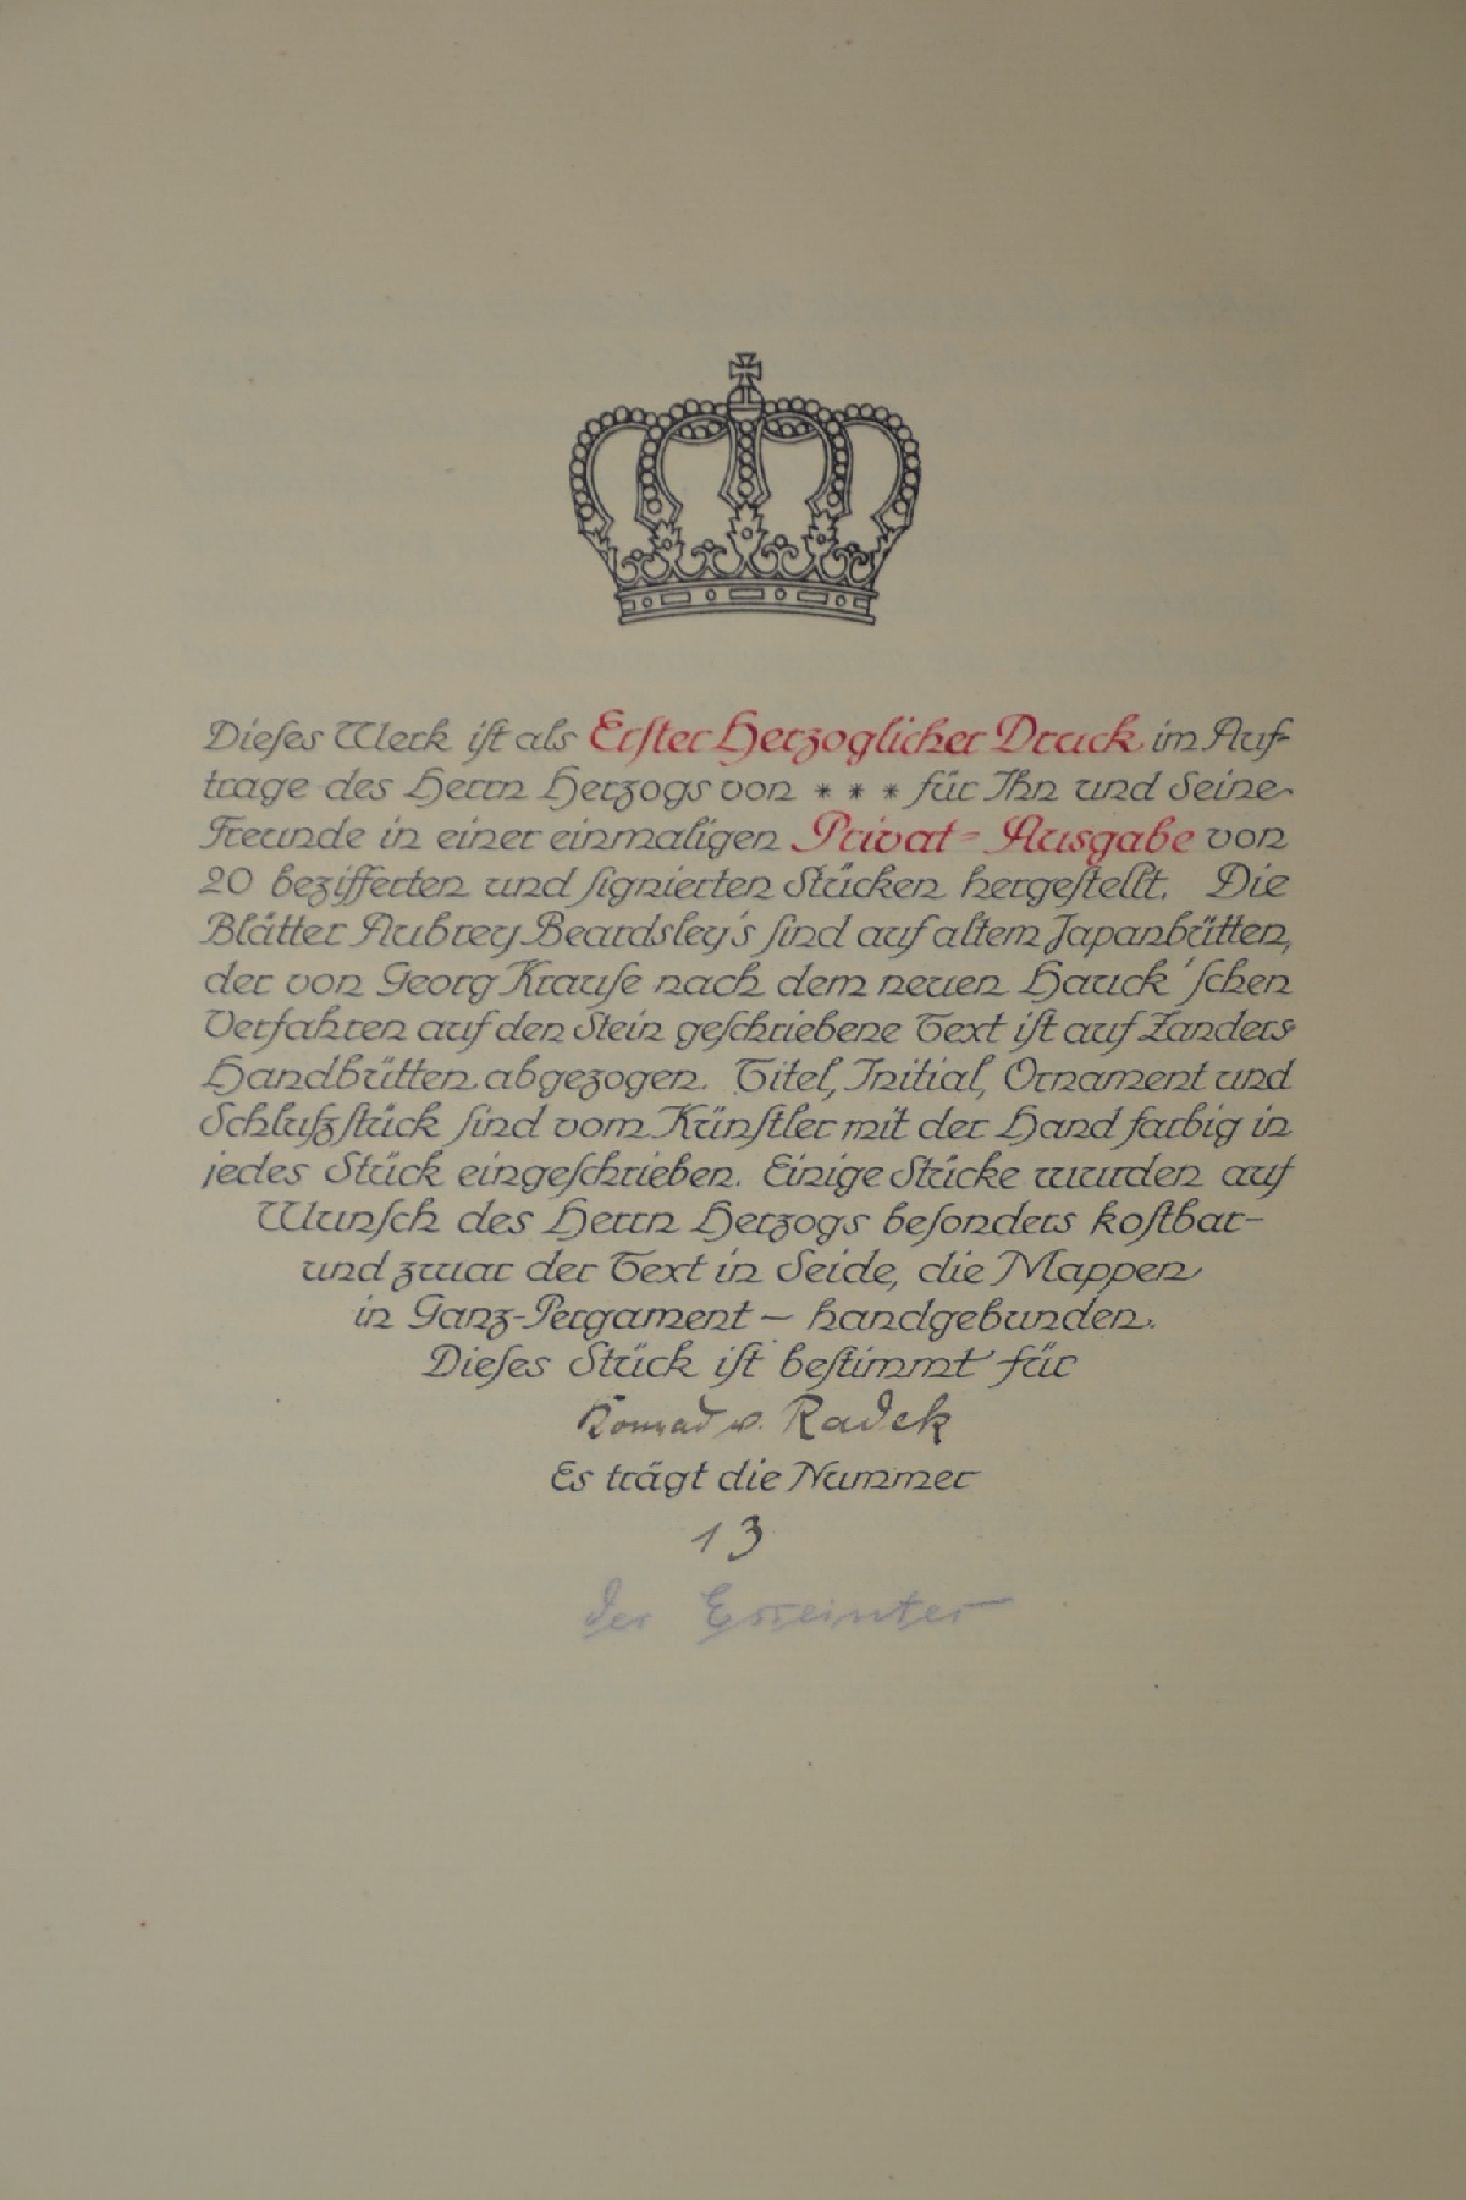 Dieſes Werk iſt als Erſter Herzoglicher Druck im Auf-
trage des Herrn Herzogs von * * * für Ihn und Seine
Freunde in einer einmaligen Privat-Ausgabe von
20 bezifferten und ſignierten Stücken hergeſtellt. Die
Blätter Aubrey Beardsley's ſind auf altem Japanbütten,
der von Georg Krauſe nach dem neuen Hauck'ſchen
Verfahren auf den Stein geſchriebene Text iſt auf Zanders
Handbütten abgezogen. Titel, Initial, Ornament und
Schlußſtück ſind vom Künſtler mit der Hand farbig in
jedes Stück eingeſchrieben. Einige Stücke wurden auf
Wunſch des Herrn Herzogs beſonders koſtbar-
und zwar der Text in Seide, die Mappen
in Ganz-Pergament – handgebunden.
Dieſes Stück iſt beſtimmt für
Konrad v. Radek
Es trägt die Nummer
13
der